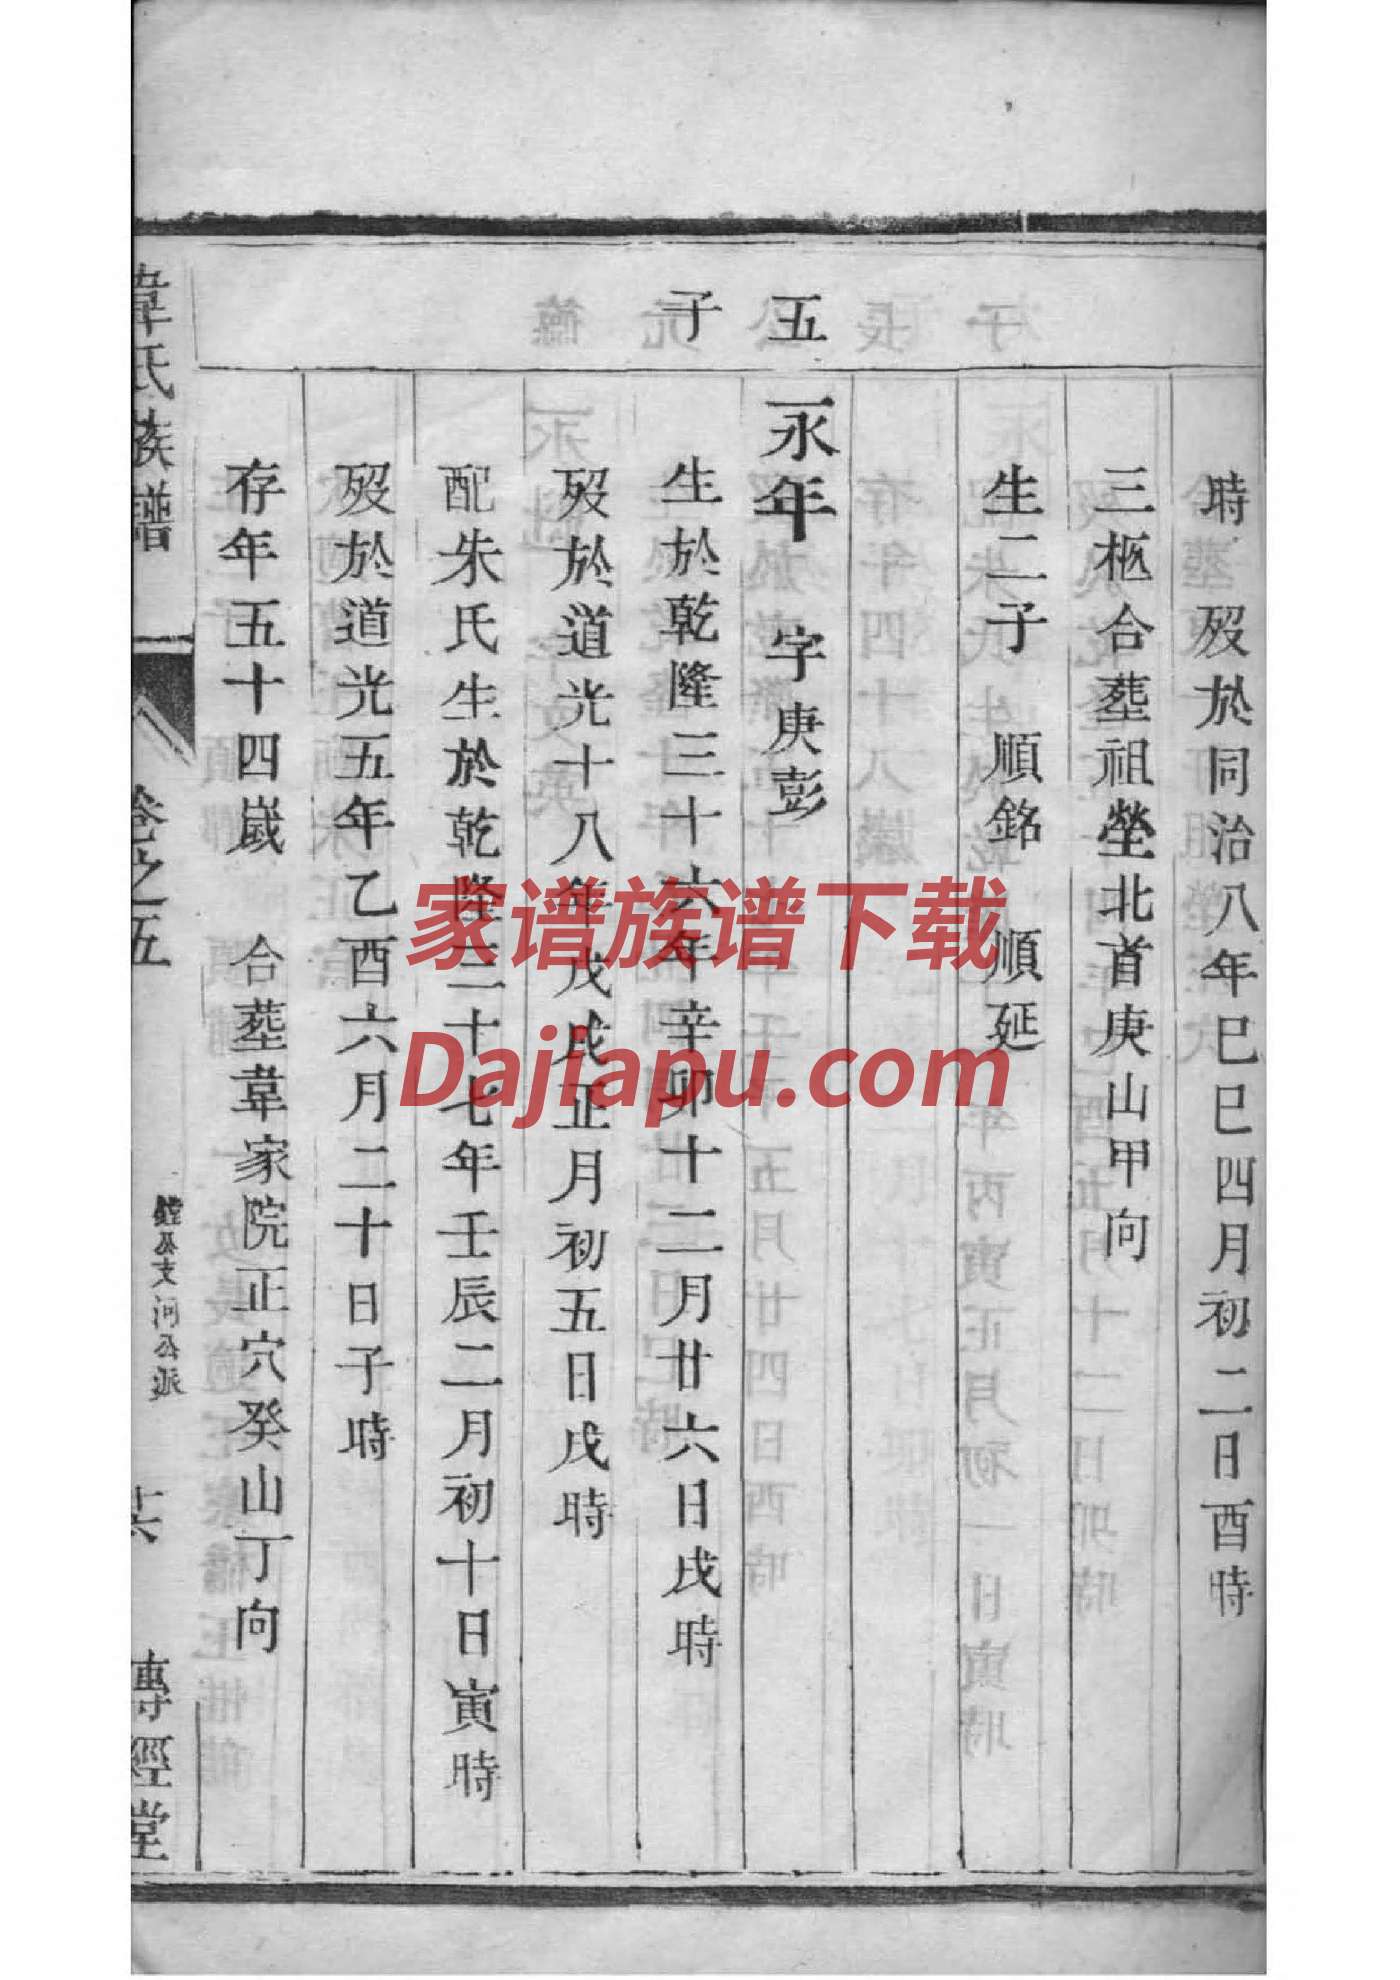 時 歿於同治八年巳巳四月初二日酉時
三柩合塟祖塋北首庚山甲向
生二子 順銘 順延
五子
永年 字庚彭
生於乾隆三十六年辛卯十二月廿六日戌時
歿於道光十八年戊戌正月初五日戌時
配朱氏生於乾隆三十七年壬辰二月初十日寅時
歿於道光五年乙酉六月二十日子時
存年五十四歲 合塟韋家院正穴癸山丁向
韋氏族譜 卷之五 公支河公派 十六 傳經堂
家谱族谱下载
Dajiapu.com